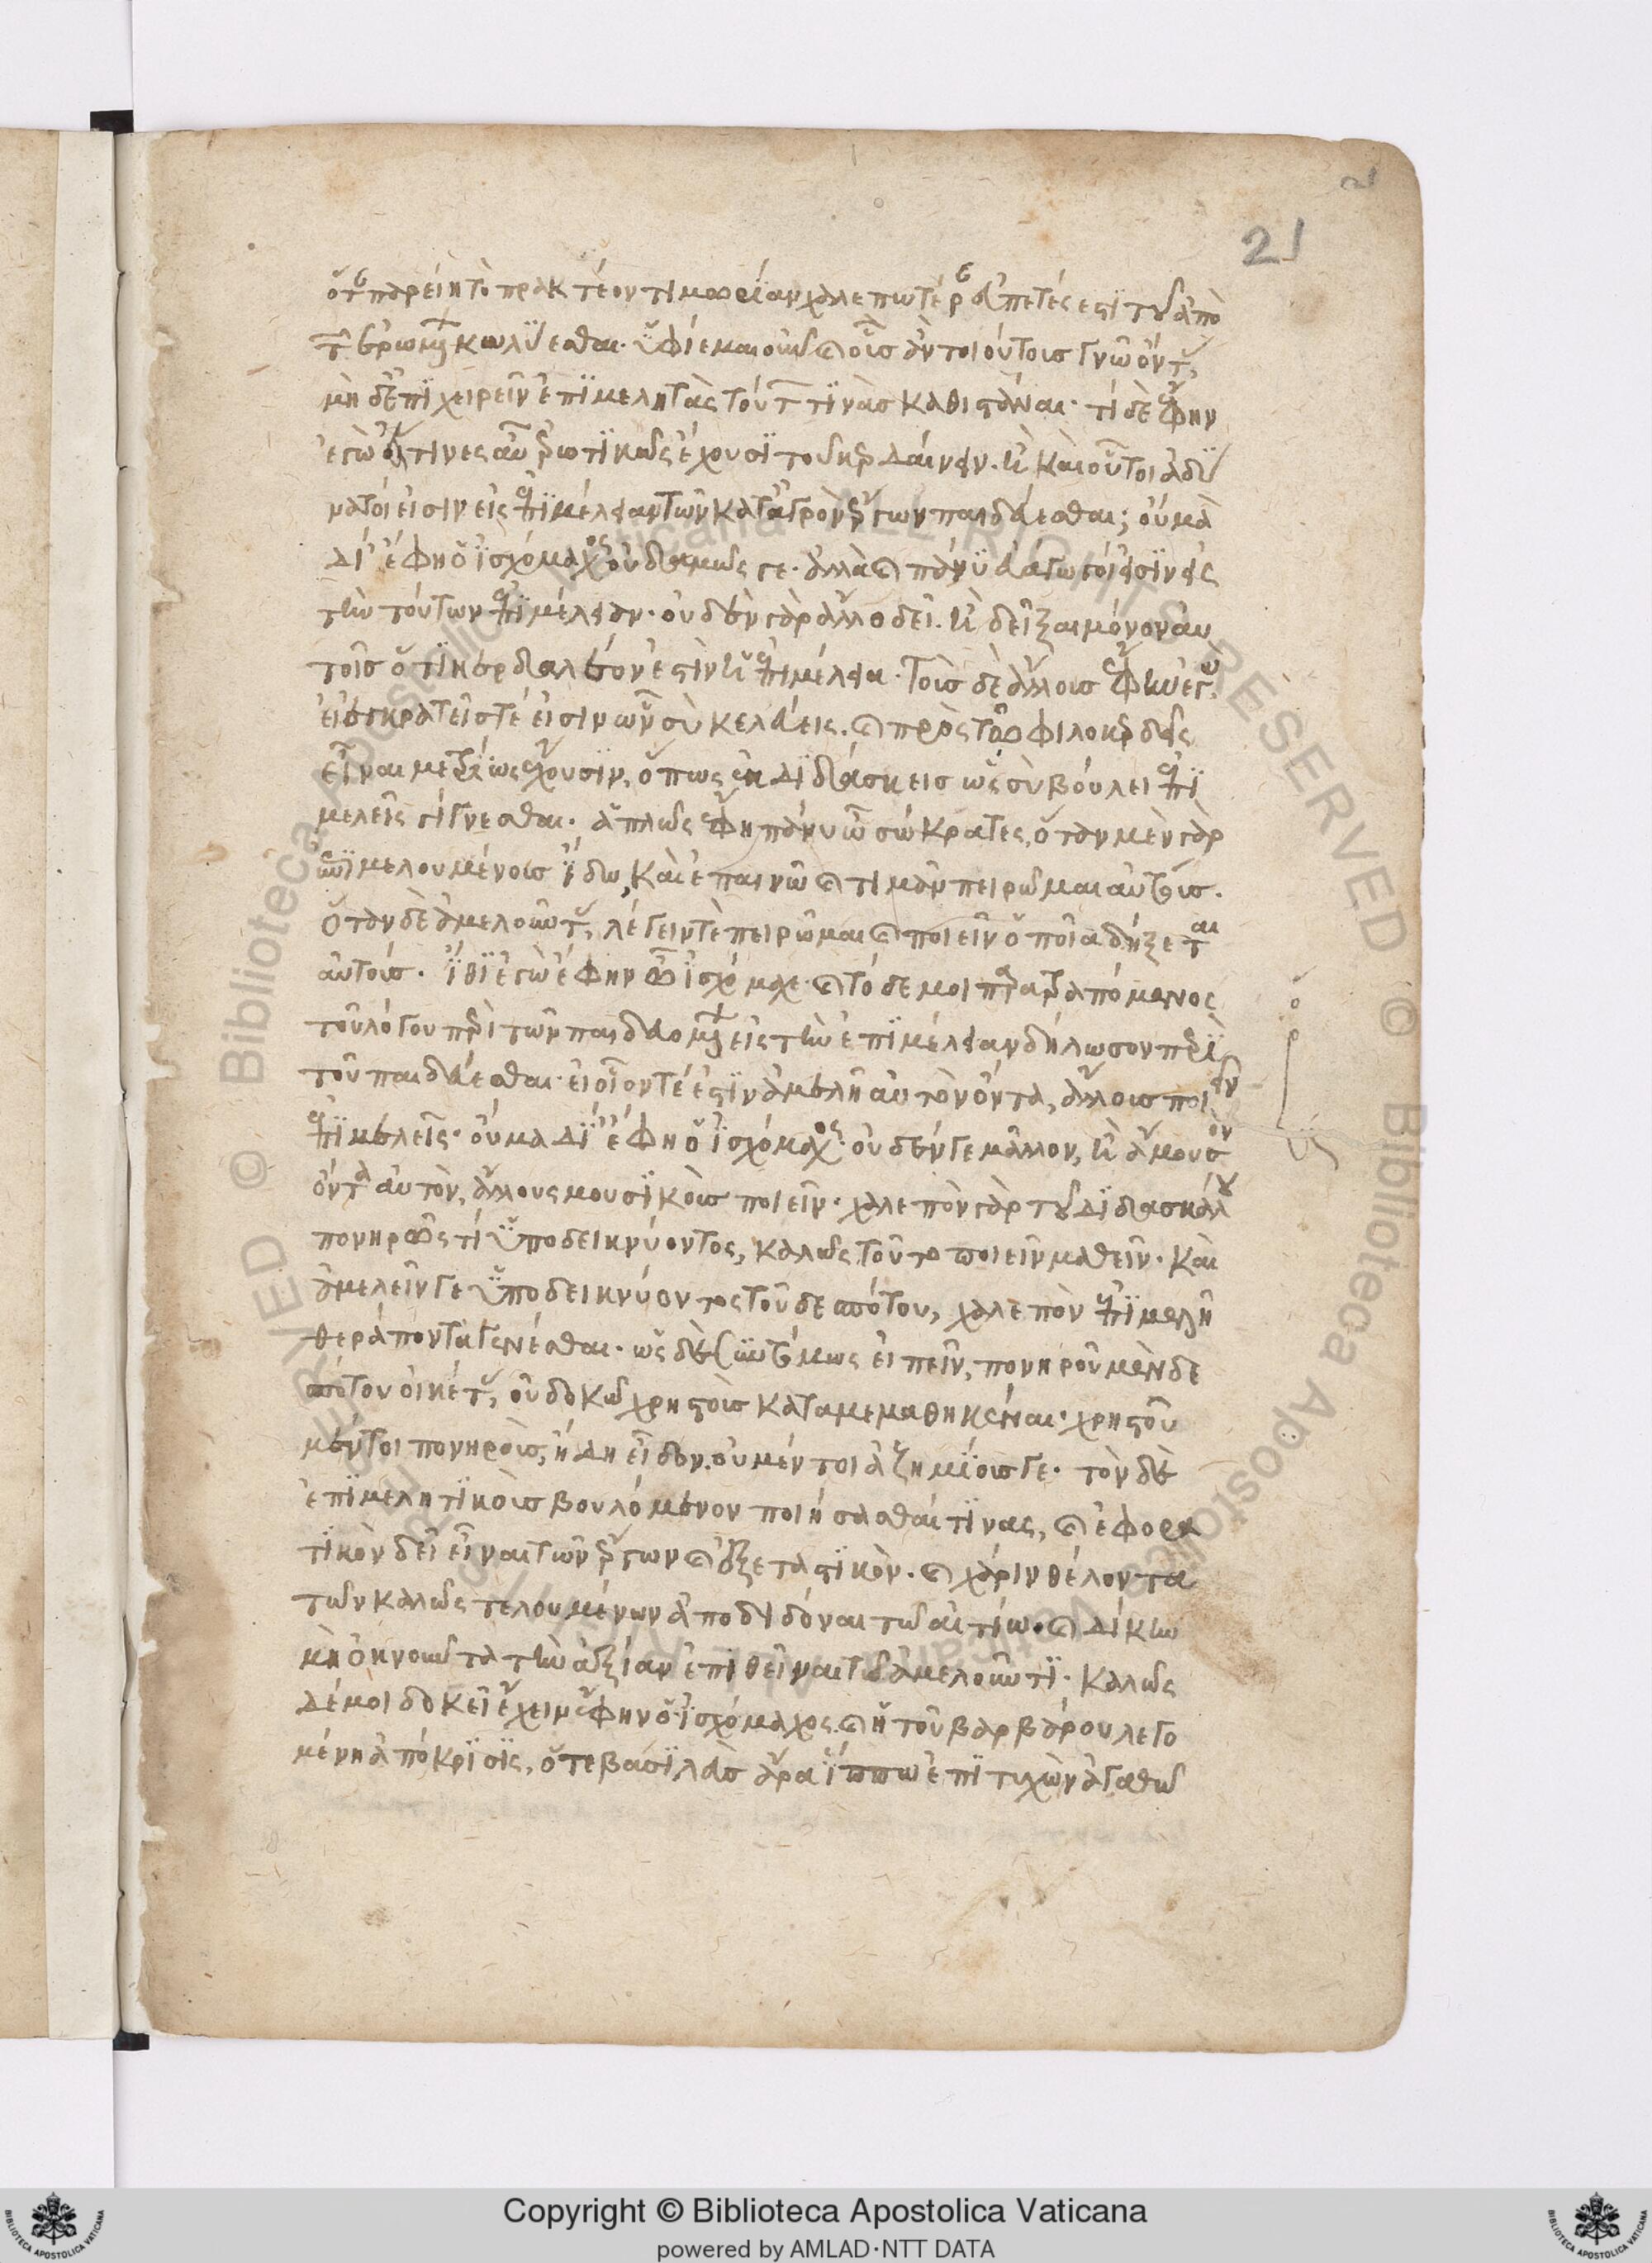 21
ὅταν παρείη τὸ πρακτέον τιμωρίαν χαλεπωτέρα εὐπετές ἐστι τοῦ ἀπὸ
τῶν ἐρωμένων κωλύεσθαι. ὑφίεμαι οὖν καὶ οὓς ἂν τοιούτους γνῶ ὄντας,
μηδ' ἐπιχειρεῖν ἐπιμελητὰς τούτων τινὰς καθιστάναι. τί δὲ ἔφην
ἐγὼ οἵτινες αὖ ἐρωτικῶς ἔχουσι τοῦ κερδαίνειν. ἢ καὶ οὗτοι ἀδύ
νατοί εἰσιν εἰς ἐπιμέλειαν τῶν κατ' ἀγρὸν ἔργων παιδεύεσθαι; οὐ μὰ
Δί' ἔφη ὁ ἰσχόμαχος οὐδαμῶς γε. ἀλλὰ καὶ πάνυ εὐάγωγοί εἰσιν εἰς
τὴν τούτων ἐπιμέλειαν. οὐδὲν γὰρ ἄλλο δεῖ. ἢ δεῖξαι μόνον αὐ
τοῖς ὅτι κερδαλέον ἐστὶν ἡ ἐπιμέλεια. Τοὺς δὲ ἄλλους ἔφην ἐγὼ
εἰ ἐγκρατεῖς τέ εἰσιν ὧν σὺ κελεύεις. καὶ πρὸς τὸ φιλοκερδεῖς
εἶναι μετρίως ἔχουσιν, ὅπως ἐκδιδάσκεις ὧν σὺ βούλει ἐπι
μελεῖς γίγνεσθαι. ἁπλῶς ἔφη πάνυ ὦ σώκρατες, ὅταν μὲν γὰρ
ἐπιμελουμένους ἴδω, καὶ ἐπαινῶ καὶ τιμᾶν πειρῶμαι αὐτούς.
ὅταν δὲ ἀμελοῦντας, λέγειν τὲ πειρῶμαι καὶ ποιεῖν ὁποῖα δήξεται
αὐτούς. ἴθι ἐγὼ ἔφην ὦ ἰσχόμαχε καὶ τόδε μοι παρατραπόμενος
τοῦ λόγου περὶ τῶν παιδευομένων εἰς τὴν ἐπιμέλειαν δήλωσον περὶ
τοῦ παιδεύεσθαι. εἰ οἷόν τέ ἐστιν ἀμελῆ αὐτὸν ὄντα, ἄλλους ποιεῖν
ἐπιμελεῖς. οὐ μὰ Δί' ἔφη ὁ ἰσχόμαχος. οὐδέν γε μᾶλλον, ἢ ἄμουσον
ὄντα αὐτὸν, ἄλλους μουσικοὺς ποιεῖν. χαλεπὸν γὰρ τοῦ διδασκάλου
πονηρῶς τι ὑποδεικνύοντος, καλῶς τοῦτο ποιεῖν μαθεῖν. καὶ
ἀμελεῖν γε ὑποδεικνύοντος τοῦ δεσπότου, χαλεπὸν ἐπιμελῆ
θεράποντα γενέσθαι. ὡς δὲ συντόμως εἰπεῖν, πονηροῦ μὲν δε
σπότου οἰκέτας, οὐ δοκῶ χρηστοὺς καταμεμαθηκέναι. χρηστοῦ
μέντοι πονηροὺς, ἤδη εἶδον. οὐ μέντοι ἀζημίους γε. τὸν δὲ
ἐπιμελητικοὺς βουλόμενον ποιήσασθαί τινας, καὶ ἐφορα
τικὸν δεῖ εἶναι τῶν ἔργων καὶ ἐξεταστικὸν. καὶ χάριν θέλοντα
τῶν καλῶς τελουμένων ἀποδιδόναι τῷ αἰτίῳ. καὶ δίκην
μὴ ὀκνοῦντα τὴν ἀξίαν ἐπιθεῖναι τῷ ἀμελοῦντι. καλῶς
δέ μοι δοκεῖ ἔχειν ἔφην ὁ ἰσχόμαχος. καὶ ἡ τοῦ βαρβάρου λεγο
μένη ἀπόκρισις, ὅτε βασιλεὺς ἄρα ἵππῳ ἐπιτυχὼν ἀγαθῷ
Copyright © Biblioteca Apostolica Vaticana
powered by AMLAD·NTT DATA